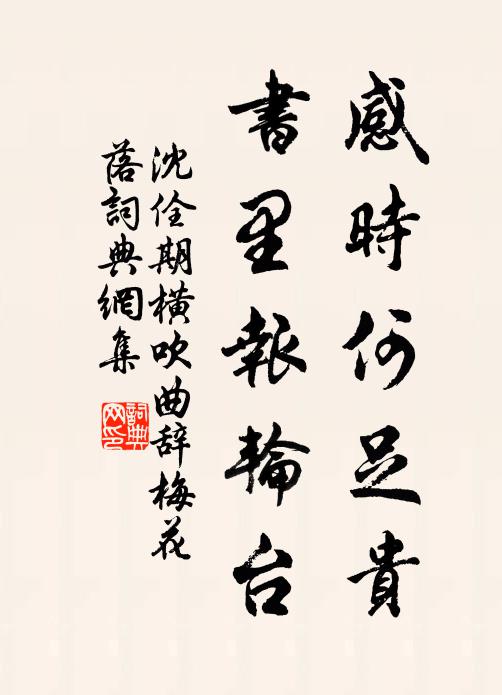 感時何足貴
書里報輪台
沈佺期橫吹曲辞梅花
落詞典網集
詞典
网印